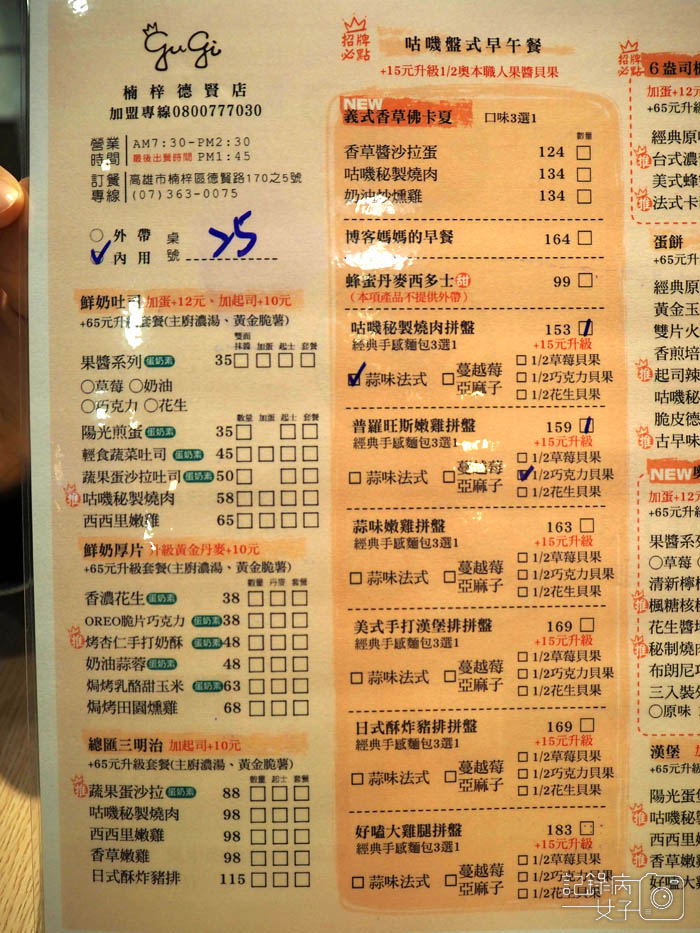 GuGi
楠梓德賢店
加盟專線0800777030
營業時間 AM7:30-PM2:30
最後出餐時間 PM1:45
訂餐專線 高雄市楠梓區德賢路170之5號
(07)363-0075
外帶 桌號 25
內用
鮮奶吐司 加蛋+12元、加起司+10元
+65元升級套餐(主廚濃湯、黃金脆薯)
雙面抹醬 加蛋 起士 套餐
果醬系列 蛋奶素 35
○草莓 ○奶油
○巧克力 ○花生
數量 加蛋 起士 套餐
陽光煎蛋 蛋奶素 35
輕食蔬菜吐司 蛋奶素 45
蔬果蛋沙拉吐司 蛋奶素 50
推 咕嘰秘製燒肉 58
西西里嫩雞 65
鮮奶厚片 升級黃金丹麥+10元
+65元升級套餐(主廚濃湯、黃金脆薯)
數量 丹麥 套餐
香濃花生 蛋奶素 38
OREO脆片巧克力 蛋奶素 38
推 烤杏仁手打奶酥 蛋奶素 48
奶油蒜蓉 蛋奶素 48
焗烤乳酪甜玉米 蛋奶素 63
焗烤田園燻雞 68
總匯三明治 加起司+10元
+65元升級套餐(主廚濃湯、黃金脆薯)
數量 起士 套餐
推 蔬果蛋沙拉 蛋奶素 88
咕嘰秘製燒肉 98
西西里嫩雞 98
香草嫩雞 98
日式酥炸豬排 115
招牌必點 咕嘰盤式早午餐
+15元升級1/2奧本職人果醬貝果
NEW
義式香草佛卡夏 口味3選1
數量
香草醬沙拉蛋 124
咕嘰秘製燒肉 134
奶油炒燻雞 134
博客媽媽的早餐 164
蜂蜜丹麥西多士 甜 99
(本項產品不提供外帶)
咕嘰秘製燒肉拼盤 153
經典手感麵包3選1 +15元升級
蒜味法式 蔓越莓亞麻子
1/2草莓貝果
1/2巧克力貝果
1/2花生貝果
普羅旺斯嫩雞拼盤 159
經典手感麵包3選1 +15元升級
蒜味法式 蔓越莓亞麻子
1/2草莓貝果
1/2巧克力貝果
1/2花生貝果
蒜味嫩雞拼盤 163
經典手感麵包3選1 +15元升級
蒜味法式 蔓越莓亞麻子
1/2草莓貝果
1/2巧克力貝果
1/2花生貝果
美式手打漢堡排拼盤 169
經典手感麵包3選1 +15元升級
蒜味法式 蔓越莓亞麻子
1/2草莓貝果
1/2巧克力貝果
1/2花生貝果
日式酥炸豬排拼盤 169
經典手感麵包3選1 +15元升級
蒜味法式 蔓越莓亞麻子
1/2草莓貝果
1/2巧克力貝果
1/2花生貝果
好嗑大雞腿拼盤 183
經典手感麵包3選1 +15元升級
蒜味法式 蔓越莓亞麻子
1/2草莓貝果
1/2巧克力貝果
1/2花生貝果
招牌必點 6盎司
加蛋+12元
+65元升級
經典原味
推 台式濃
美式蜂
推 法式卡
蛋餅
+65元升級
經典原
黃金玉
雙片火
香煎培
推 起司辣
咕嘰秘
脆皮德
推 古早味
NEW
加蛋+12
+65元升級
果醬系列
○草莓
清新檸檬
推 楓糖核桃
花生醬
推 秘制燒肉
布朗尼巧
三入裝
○原味
漢堡
+65元升級
陽光蛋堡
推 咕嘰秘
西西里嫩
推 香草嫩雞
好嗑大雞
記錄病女子